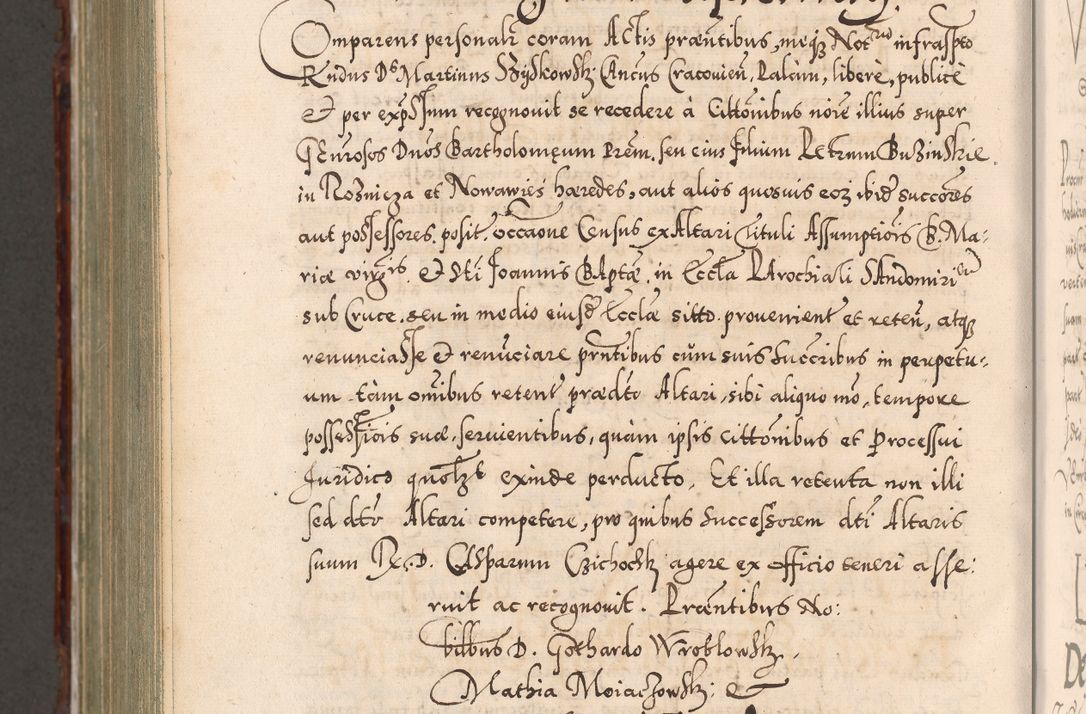 Comparens personalr coram Actis præntibus, meq3 Notrio infrasspto
Rndus Ds Martinus Szyskowsk: Cancus Cracovien, Palam, liberè, publicè
et per expssum recognovit se recedere à Citt̃onibus noĩe illius super
Generosos Dnõs Bartholomęum Prẽm. seu eius filium Petrum Buzinskie
in Rosnicza et Nowawies hæredes, aut alios quosvis eo3 ibid succorẽs
aut possessores, posit. occãone Census ex Altari Tituli Assumptiõis B. Ma-
riæ virgis. et Sti Joannis Baptæ in Eccla Parochiali Sandomirien
sub Cruce, seu in medio eiusd Ecclæ sitto. provenient et reten, atq3
renunciasse et renũciare prntibus cũm suis succribus in perpetu-
um tàm om̃ibus retent prædto Altari, sibi aliquo mõ, tempore
possessiõis suæ, servientibus, quàm ipsis citt̃onibus et Processui
Juridico quolzt exinde perducto. Et illa retenta non illi
sed dtõ Altari competere, pro quibus successorem dti Altaris
suum R. D. Casparum Czichock: agere ex officio teneri asse:
ruit ac recognovit. Præntibus No:
bilbus D. Gothardo Wroblowsk,
Mathia Moiaczowsk: et